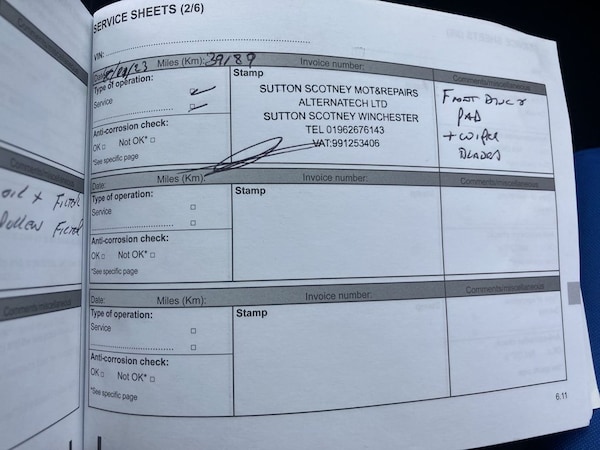 SERVICE SHEETS (2/6)
VIN:
Miles (Km): 39189 Invoice number:
Type of operation:
Service
Anti-corrosion check:
OK □ Not OK* □
*See specific page
Stamp
SUTTON SCOTNEY MOT&REPAIRS
ALTERNATECH LTD
SUTTON SCOTNEY WINCHESTER
TEL 01962676143
VAT:991253406
Comments/miscellaneous
FRONT DISCS
PAD
+ WIPER
BLADES
Comments/miscellaneous
oil + Filter
Pollen Filter
Comments/miscellaneous
Date: Miles (Km): Invoice number:
Type of operation:
Service □
□
Anti-corrosion check:
OK □ Not OK* □
*See specific page
Stamp
Comments/miscellaneous
Date: Miles (Km): Invoice number:
Type of operation:
Service □
□
Anti-corrosion check:
OK □ Not OK* □
*See specific page
Stamp
Comments/miscellaneous
6.11